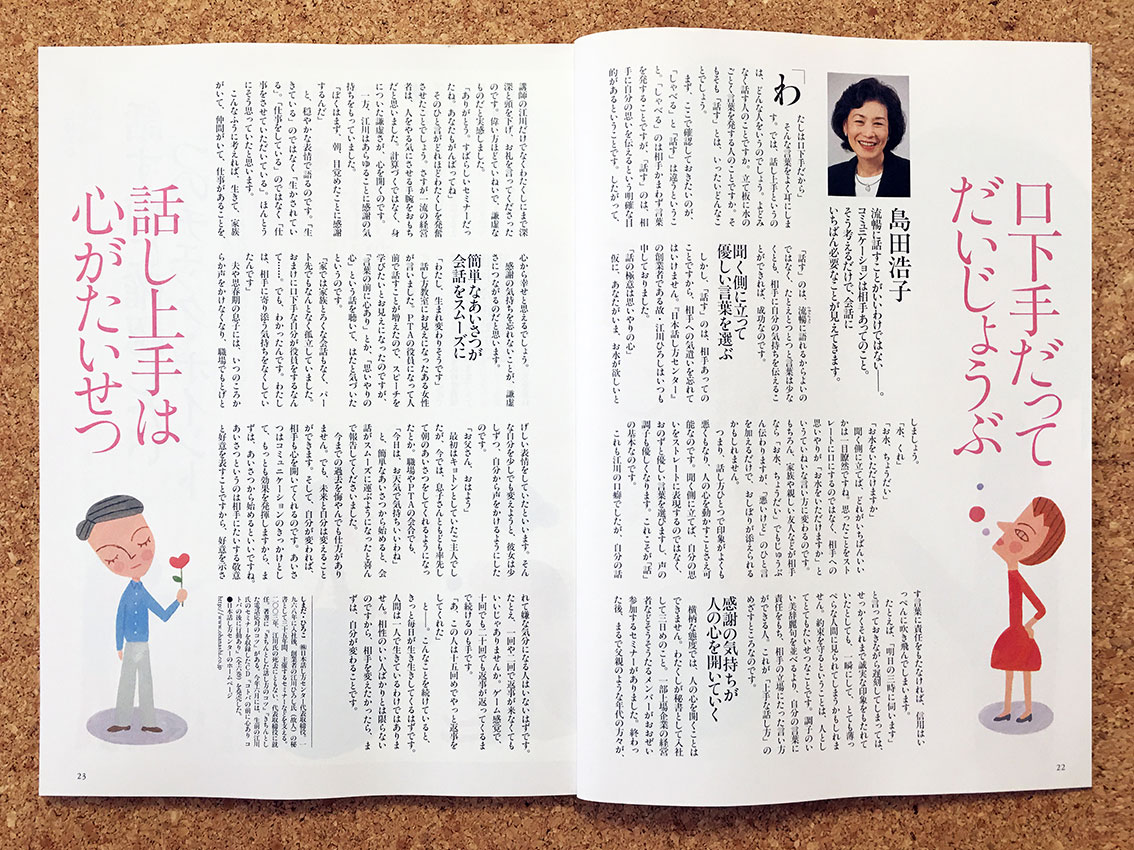 口下手だって
だいじょうぶ
島田浩子
流暢に話すことがいいわけではない――。
コミュニケーションは相手あってのこと。
そう考えるだけで、会話に
いちばん必要なことが見えてきます。
「わたしは口下手だから」
そんな言葉をよく耳にしま
す。では、話し上手というの
は、どんな人をいうのでしょう。よどみ
なく話す人のことですか。立て板に水の
ごとく言葉を発する人のことですか。そ
もそも「話す」とは、いったいどんなこ
とでしょう。
まず、ここで確認しておきたいのが、
「しゃべる」と「話す」は違うというこ
と。「しゃべる」のは相手かまわず言葉
を発することですが、「話す」のは、相
手に自分の思いを伝えるという明確な目
的があるということです。したがって、
「話す」のは、流暢に語れるからよいの
ではなく、たとえとつとつと言葉は少な
くとも、相手に自分の気持ちを伝えるこ
とができれば、成功なのです。
聞く側に立って
優しい言葉を選ぶ
しかし、「話す」のは、相手あっての
ことですから、相手への気遣いを忘れて
はいけません。「日本話し方センター」
の創業者である故・江川ひろしはいつも
申しておりました。
「話の極意は思いやりの心」
仮に、あなたがいま、お水が欲しいと
しましょう。
「水、くれ」
「お水、ちょうだい」
「お水をいただけますか」
聞く側に立てば、どれがいちばんいい
かは一目瞭然ですね。思ったことをスト
レートに口にするのではなく、相手への
思いやりが「お水をいただけますか」と
いうていねいな言い方に変わるのです。
もちろん、家族や親しい友人などが相手
なら「お水、ちょうだい」でもじゅうぶ
ん伝わりますが、「悪いけど」のひと言
を加えるだけで、おしぼりが添えられる
かもしれません。
つまり、話し方ひとつで印象がよくも
悪くもなり、人の心を動かすことさえ可
能なのです。聞く側に立てば、自分の思
いをストレートに表現するのではなく、
おのずと優しい言葉を選びますし、声の
調子も優しくなります。これこそが「話」
の基本なのです。
これも江川の口癖でしたが、自分の話
す言葉に責任をもたなければ、信用はい
っぺんに吹き飛んでしまいます。
たとえば、「明日の三時に伺います」
と言っておきながら遅刻してしまっては、
せっかくそれまで誠実な印象をもたれて
いたとしても、一瞬にして、とても薄っ
ぺらな人間に見られてしまうかもしれま
せん。約束を守るということは、人とし
てとてもたいせつなことです。調子のい
い美辞麗句を並べるより、自分の言葉に
責任をもち、相手の立場にたった言い方
ができる人。これが「上手な話し方」の
めざすところなのです。
感謝の気持ちが
人の心を開いていく
横柄な態度では、人の心を開くことは
できません。わたくしが秘書として入社
して三日めのこと。一部上場企業の経営
者などそうそうたるメンバーがおおぜい
参加するセミナーがありました。終わっ
た後、まるで父親のような年代の方々が、
22
講師の江川だけでなくわたくしにまで深
深と頭を下げ、お礼を言ってくださった
のです。偉い方ほどていねいで、謙虚な
ものだと実感しました。
「ありがとう。すばらしいセミナーだっ
たね。あなたもがんばってね」
そのひと言がどれほどわたくしを発奮
させたことでしょう。さすが一流の経営
者は、人をやる気にさせる手腕をおもち
だと思いました。計算づくではなく、身
についた謙虚さが、心を開くのです。
一方、江川はあらゆることに感謝の気
持ちをもっていました。
「ぼくはまず、朝、目覚めたことに感謝
するんだ」
と、穏やかな表情で語るのです。「生
きている」のではなく「生かされてい
る」。「仕事をしている」のではなく、「仕
事をさせていただいている」。ほんとう
にそう思っていたと思います。
こんなふうに考えれば、生きて、家族
がいて、仲間がいて、仕事があることを、
心から幸せと思えるでしょう。
感謝の気持ちを忘れないことが、謙虚
さにつながるのだと思います。
簡単なあいさつが
会話をスムーズに
「わたし、生まれ変わりそうです」
話し方教室にお見えになったある女性
が言いました。PTAの役員になって人
前で話すことが増えたので、スピーチを
学びたいとお見えになったのですが、
「言葉の前に心あり」とか、「思いやりの
心」という話を聴いて、はたと気づいた
というのです。
「家では家族とろくな会話もなく、パー
ト先でもなんとなく孤立していました。
おまけに口下手な自分が役員をするなん
て……。でも、わかったんです。わたし
は、相手に寄り添う気持ちをなくしてい
たんです」
夫や思春期の息子には、いつのころか
らか声をかけなくなり、職場でもとげと
げしい表情をしていたといいます。そん
な自分を少しでも変えようと、彼女は少
しずつ、自分から声をかけるようにした
のです。
「お父さん、おはよう」
最初はキョトンとしていたご主人でし
たが、今では、息子さんともども率先し
て朝のあいさつをしてくれるようになっ
たとか。職場やPTAの会合でも、
「今日は、お天気で気持ちいいわね」
と、簡単なあいさつから始めると、会
話がスムーズに運ぶようになったと喜ん
で報告してくださいました。
今までの過去を悔やんでも仕方があり
ません。でも、未来と自分は変えること
ができます。そして、自分が変われば、
相手も心を開いてくれるのです。あいさ
つはコミュニケーションのきっかけとし
て、もっとも効果を発揮しますから、ま
ずは、あいさつから始めるといいですね。
あいさつというのは相手にたいする敬意
と好意を表すことですから、好意を示さ
れて嫌な気分になる人はいないはずです。
たとえ、一回や二回で返事が来なくても
いいじゃありませんか。ゲーム感覚で、
十回でも二十回でも返事が返ってくるま
で続けるのも手です。
「あ、この人は十五回めでやっと返事を
してくれた」
と――。こんなことを続けていると、
きっと毎日が生き生きしてくるはずです。
人間は一人で生きているわけではありま
せん。相性のいい人ばかりとは限らない
のですから、相手を変えたかったら、ま
ずは、自分が変わることです。
しまだ・ひろこ ㈱日本話し方センター代表取締役。一
九六八年に入社後、創業者の江川ひろし氏（故人）の秘
書として三十五年間、主催するセミナーなどを支える。
二〇〇三年、江川氏の死去にともない、代表取締役に就
任。著書に「きちんとした話し方のコツ」「きちんとし
た電話応対のコツ」がある。今年六月には、生前の江川
氏のセミナーを収録したCD「コトバの前に心ありコ
トバの後に行動あり」（全六巻）を発売した。
●日本話し方センターのホームページ
http://www.ohanashi.co.jp
話し上手は
心がたいせつ
23